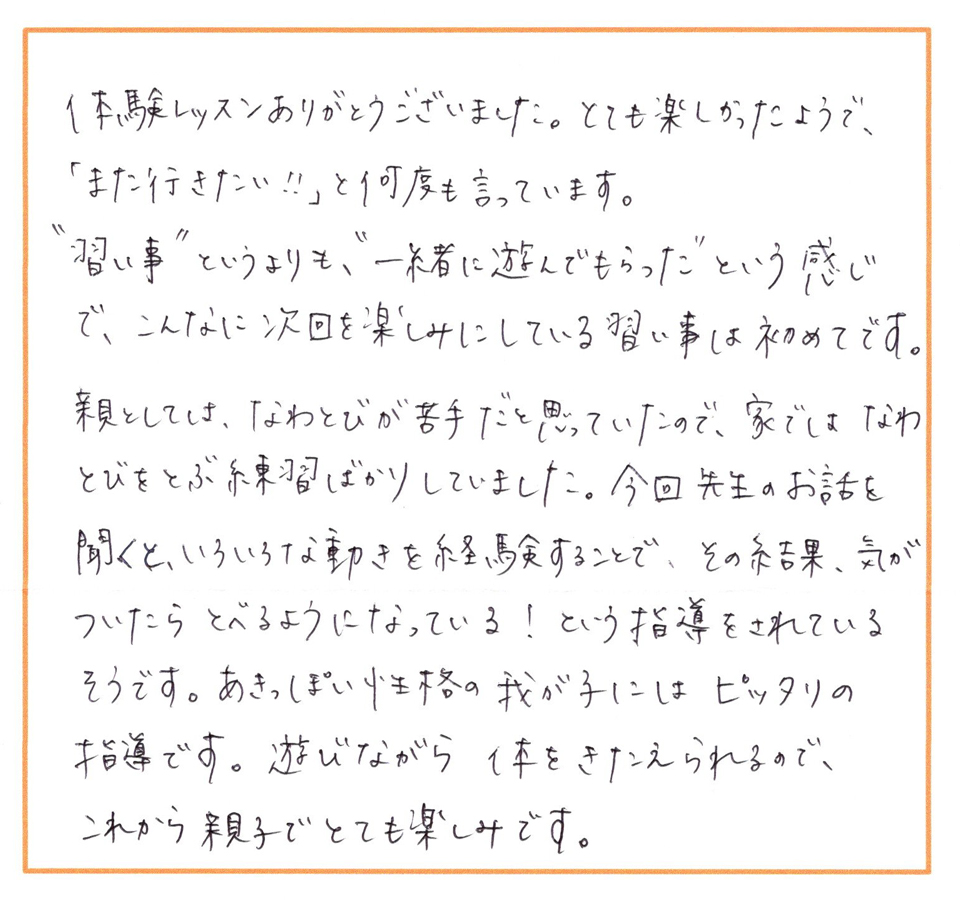 体験レッスンありがとうございました。とても楽しかったようで、
「また行きたい!!」と何度も言っています。
"習い事"というよりも、"一緒に遊んでもらった"という感じ
で、こんなに次回を楽しみにしている習い事は初めてです。
親としては、なわとびが苦手だと思っていたので、家ではなわ
とびをとぶ練習ばかりしていました。今回先生のお話を
聞くと、いろいろな動きを経験することで、その結果、気が
ついたらとべるようになっている！という指導をされている
そうです。あきっぽい性格の我が子にはピッタリの
指導です。遊びながら体をきたえられるので、
これから親子でとても楽しみです。